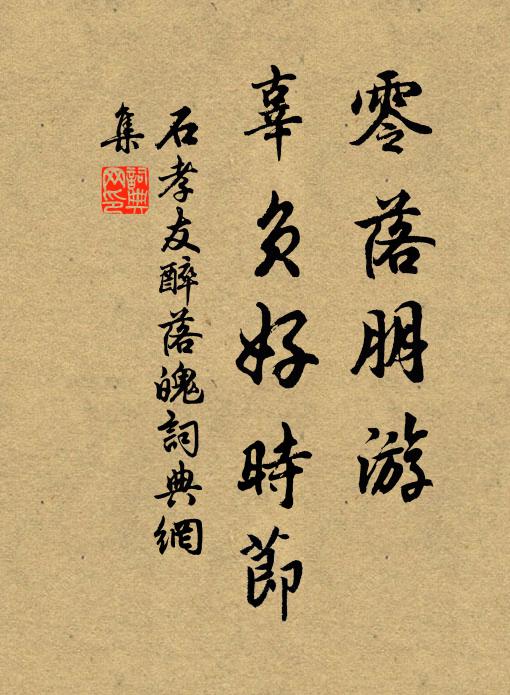 零落朋游
辜負好時節
石孝友醉落魄詞典網
集
詞典
网印